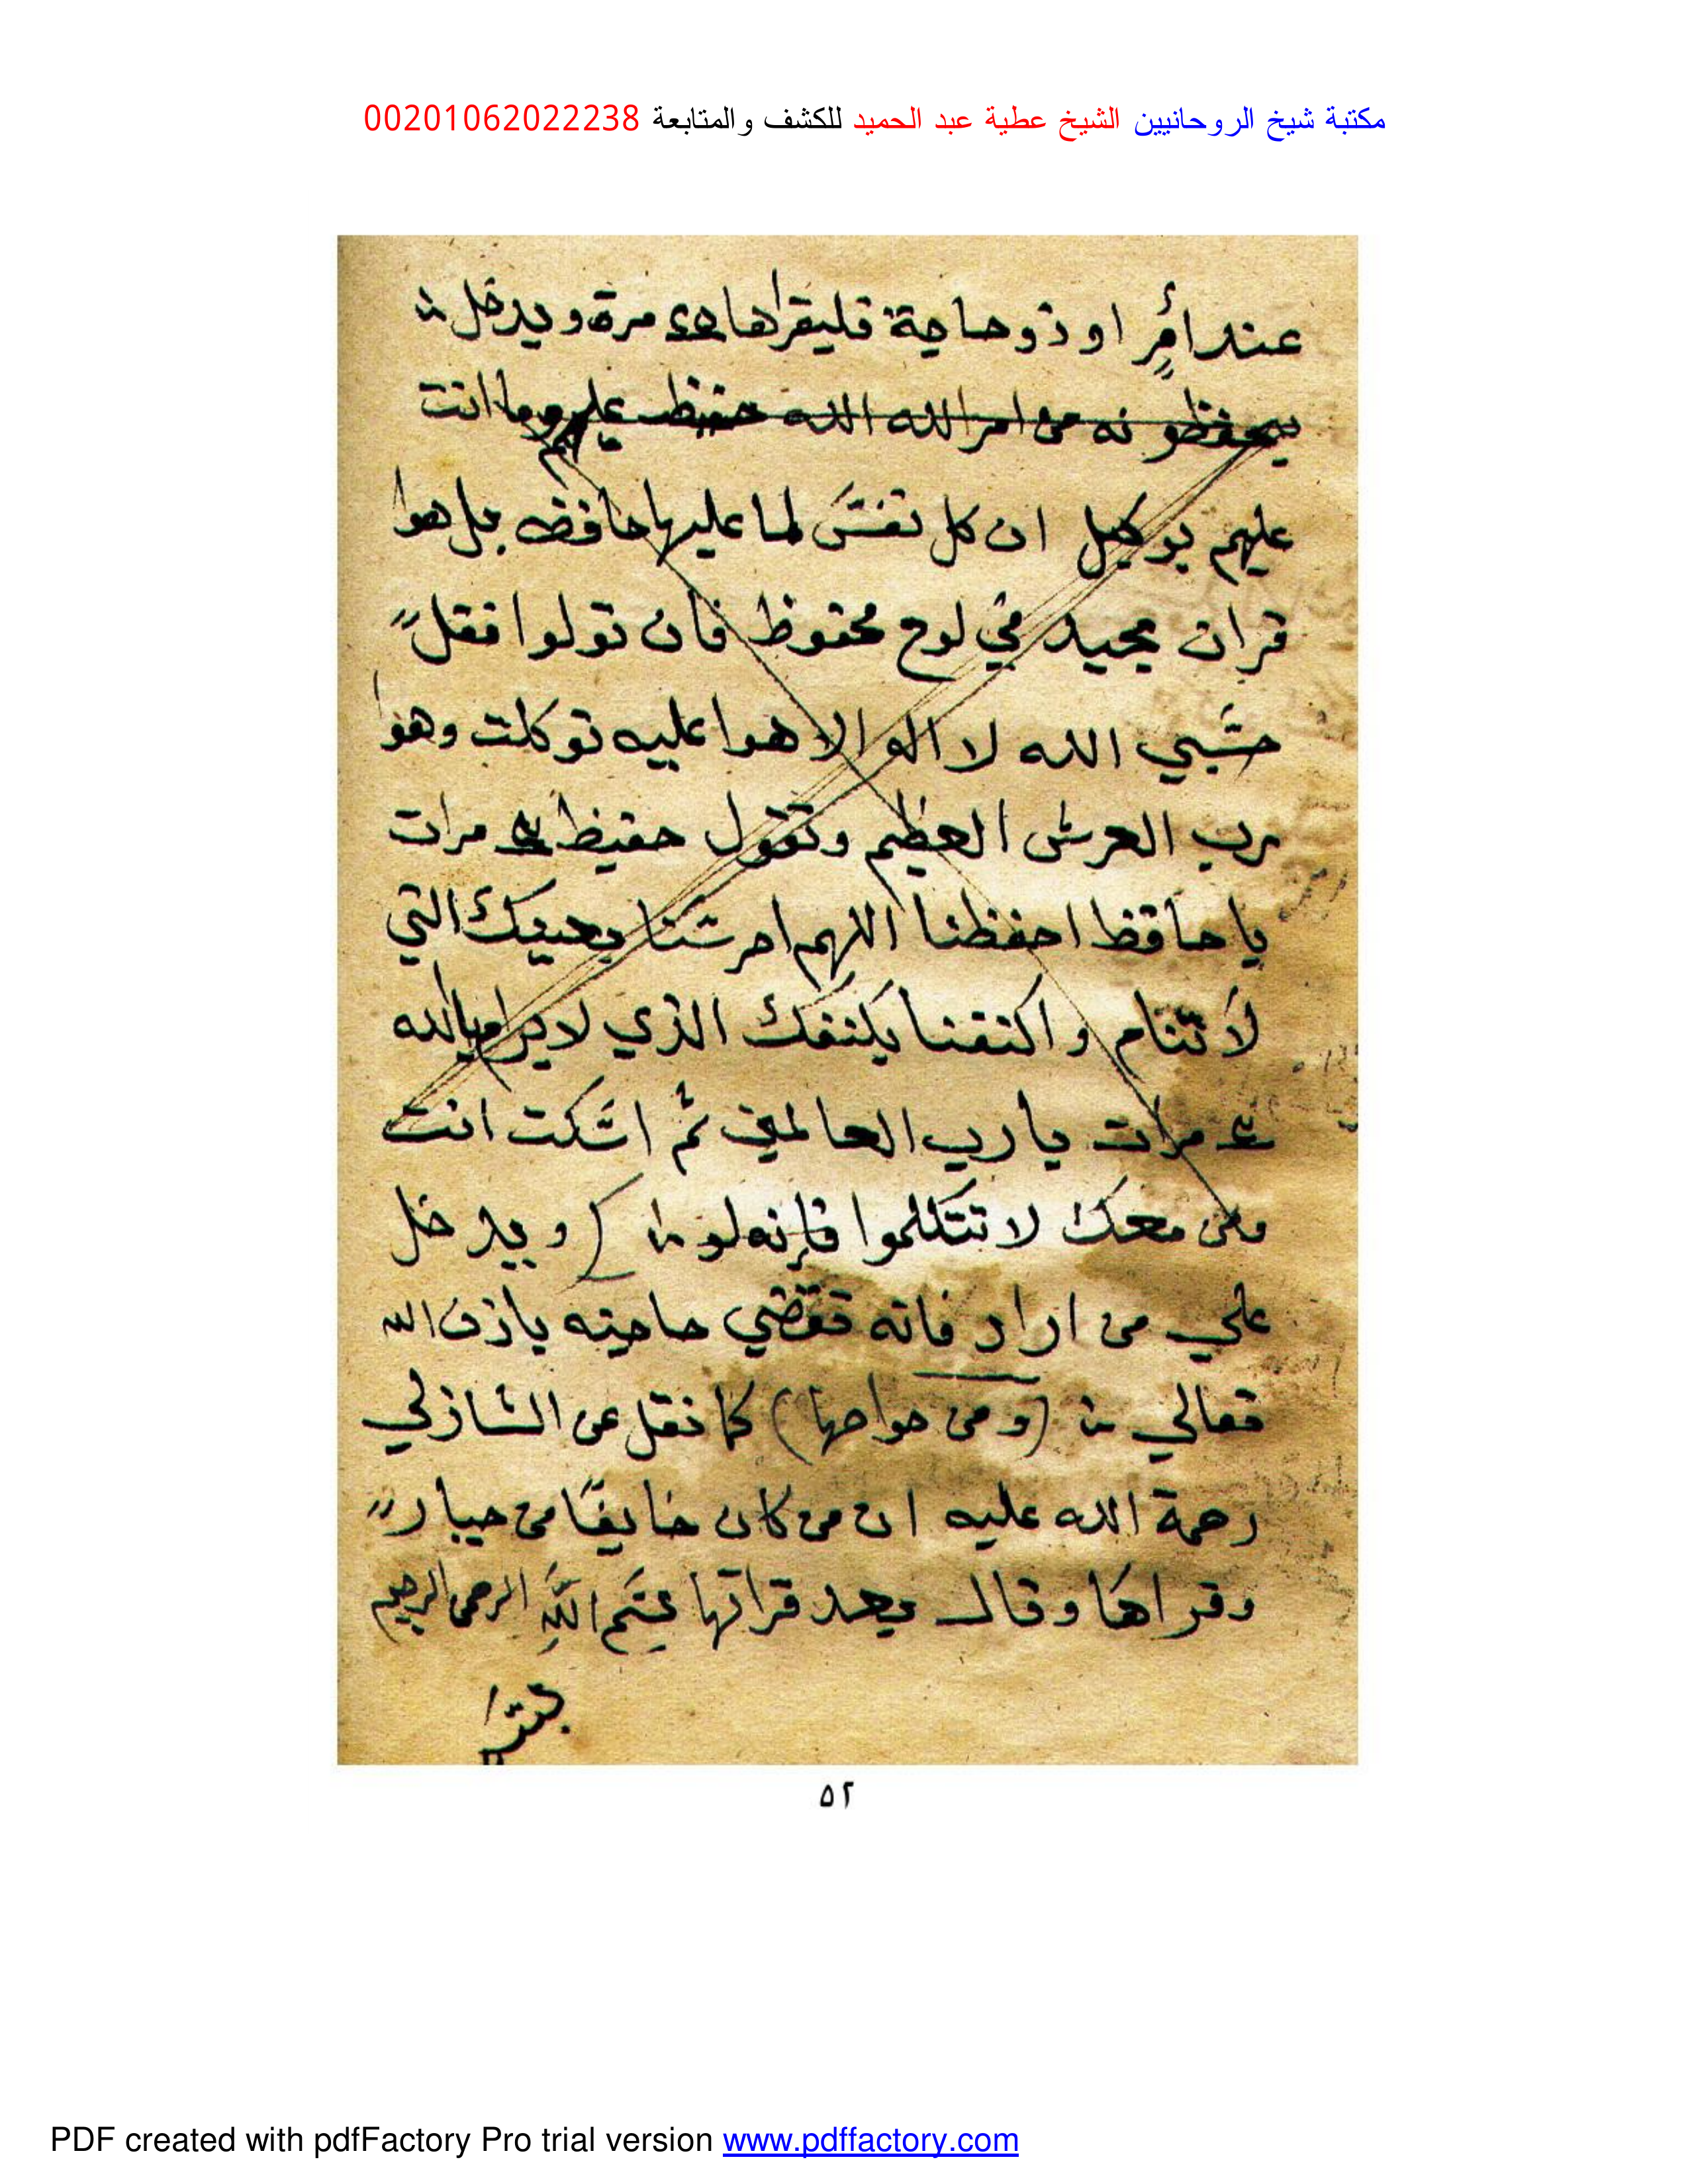 مكتبة شيخ الروحانيين الشيخ عطية عبد الحميد للكشف والمتابعة 00201062022238
عند أمرٍ او ذو حاجة فليقراها مرة ويدخل
يحفظونه من امر الله الله حفيظ عليهم وما انت
عليهم بوكيل ان كل نفس لما عليها حافظ بل هوا
قران مجيد في لوح محفوظ فأن تولوا فقل
حسبي الله لا اله الا هوا عليه توكلت وهوا
رب العرش العظيم وتقول حفيظ مرات
يا حافظ احفظنا اللهم احرسنا بعينك التي
لا تنام واكنفنا بكنفك الذي لا يرام يا الله
مرات يا رب العالمين ثم اسكت انت
ومن معك لا تتكلموا فإنه ويدخل
علي من اراد فانه تقضي حاجته باذن الله
تعالي (ومن خواصها) كما نقل عن الشازلي
رحمة الله عليه ان من كان خايفًا من جبار
وقراها وقال بعد قراتها بسم الله الرحمن الرحيم
٥٢
PDF created with pdfFactory Pro trial version www.pdffactory.com